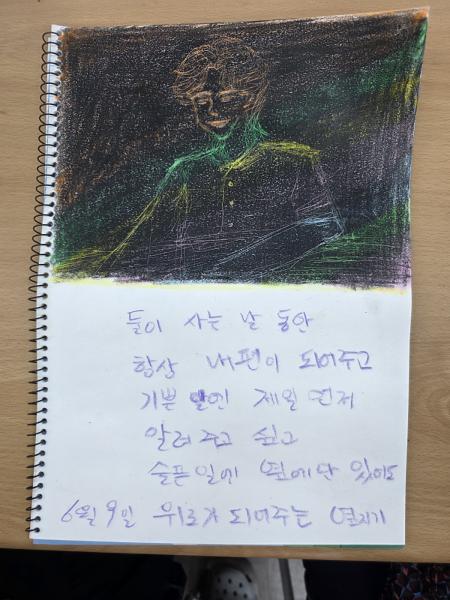 둘이 사는 날 동안
항상 내편이 되어주고
기쁜 일엔 제일 먼저
알려 주고 싶고
슬픈일에 옆에만 있어도
6월 9일 위로가 되어주는 옆지기